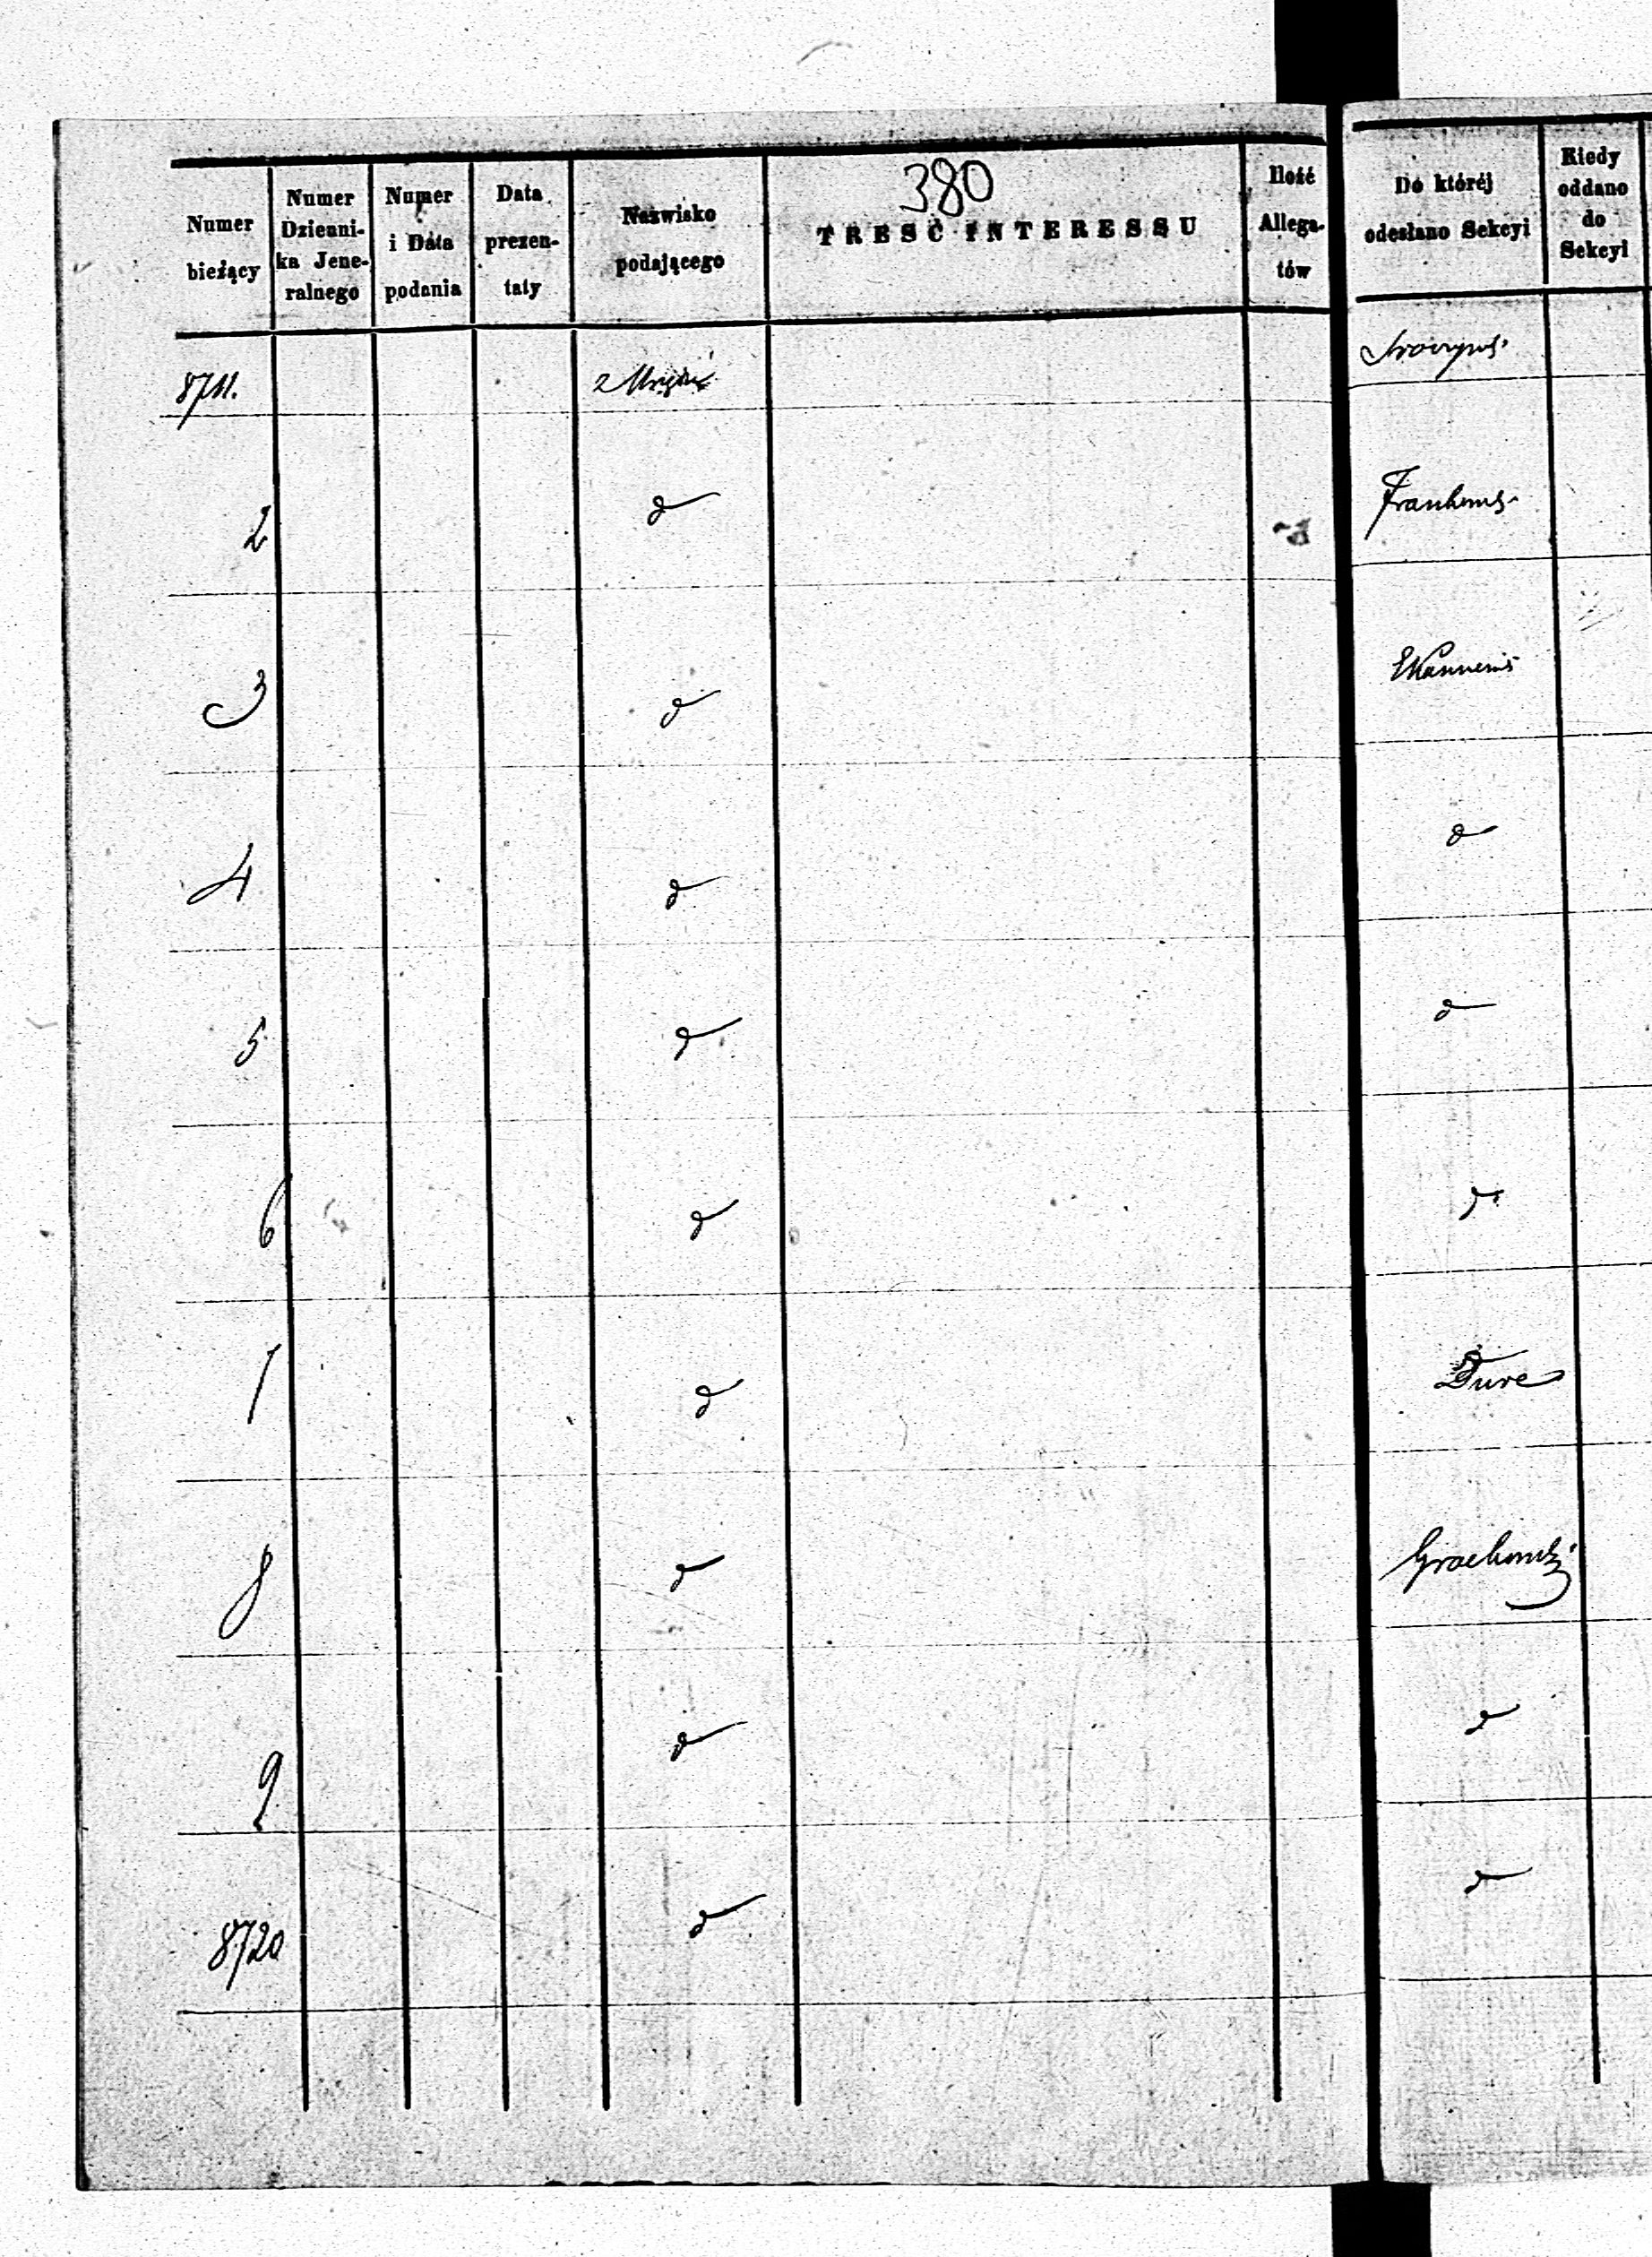 380
Numer bieżący
Numer Dzienni-ka Jene-ralnego
Numer i Data podania
Data prezen-taty
Nazwisko podającego
TREŚĆ INTERESSU
Ilość Allega-tów
Do któréj odesłano Sekcyi
Kiedy oddano do Sekcyi
8711.
2 d
3 d
4 d d
5 d d
6 d d
7 d Dure
8 d
9 d d
8720 d d